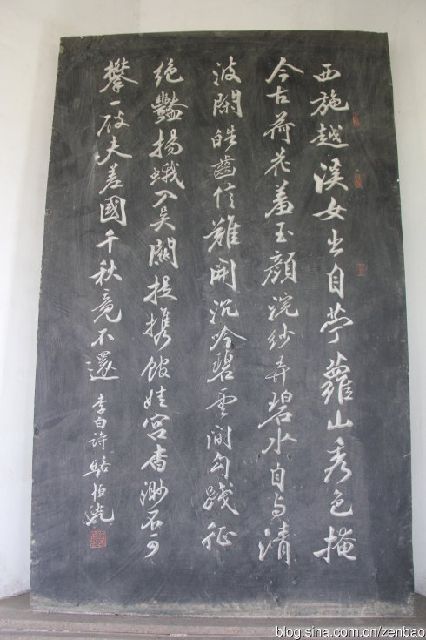 西施越溪女出自苧蘿山秀色掩
今古荷花羞玉顏浣紗弄碧水自与清
波閑皓齒信難開沉吟碧雲間勾踐征
絕豔揚蛾入吳關提攜館娃宮杳渺詎可
攀一破夫差國千秋竟不還 李白詩 駱恒光
blog.sina.com.cn/zenbao